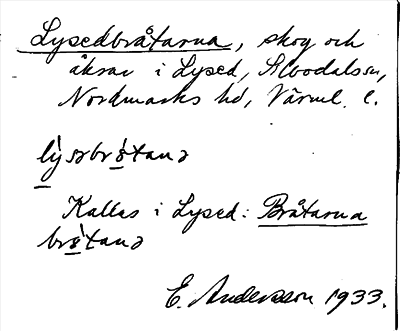 Lysedbråtarna, skog och
åkrar i Lysed, Älvdalssn,
Nordmarks hd, Värml. l.
lỳsəbrɷ̀tanə
Kallas i Lysed: Bråtarna
brɷ̀tanə
E. Andersson 1933.